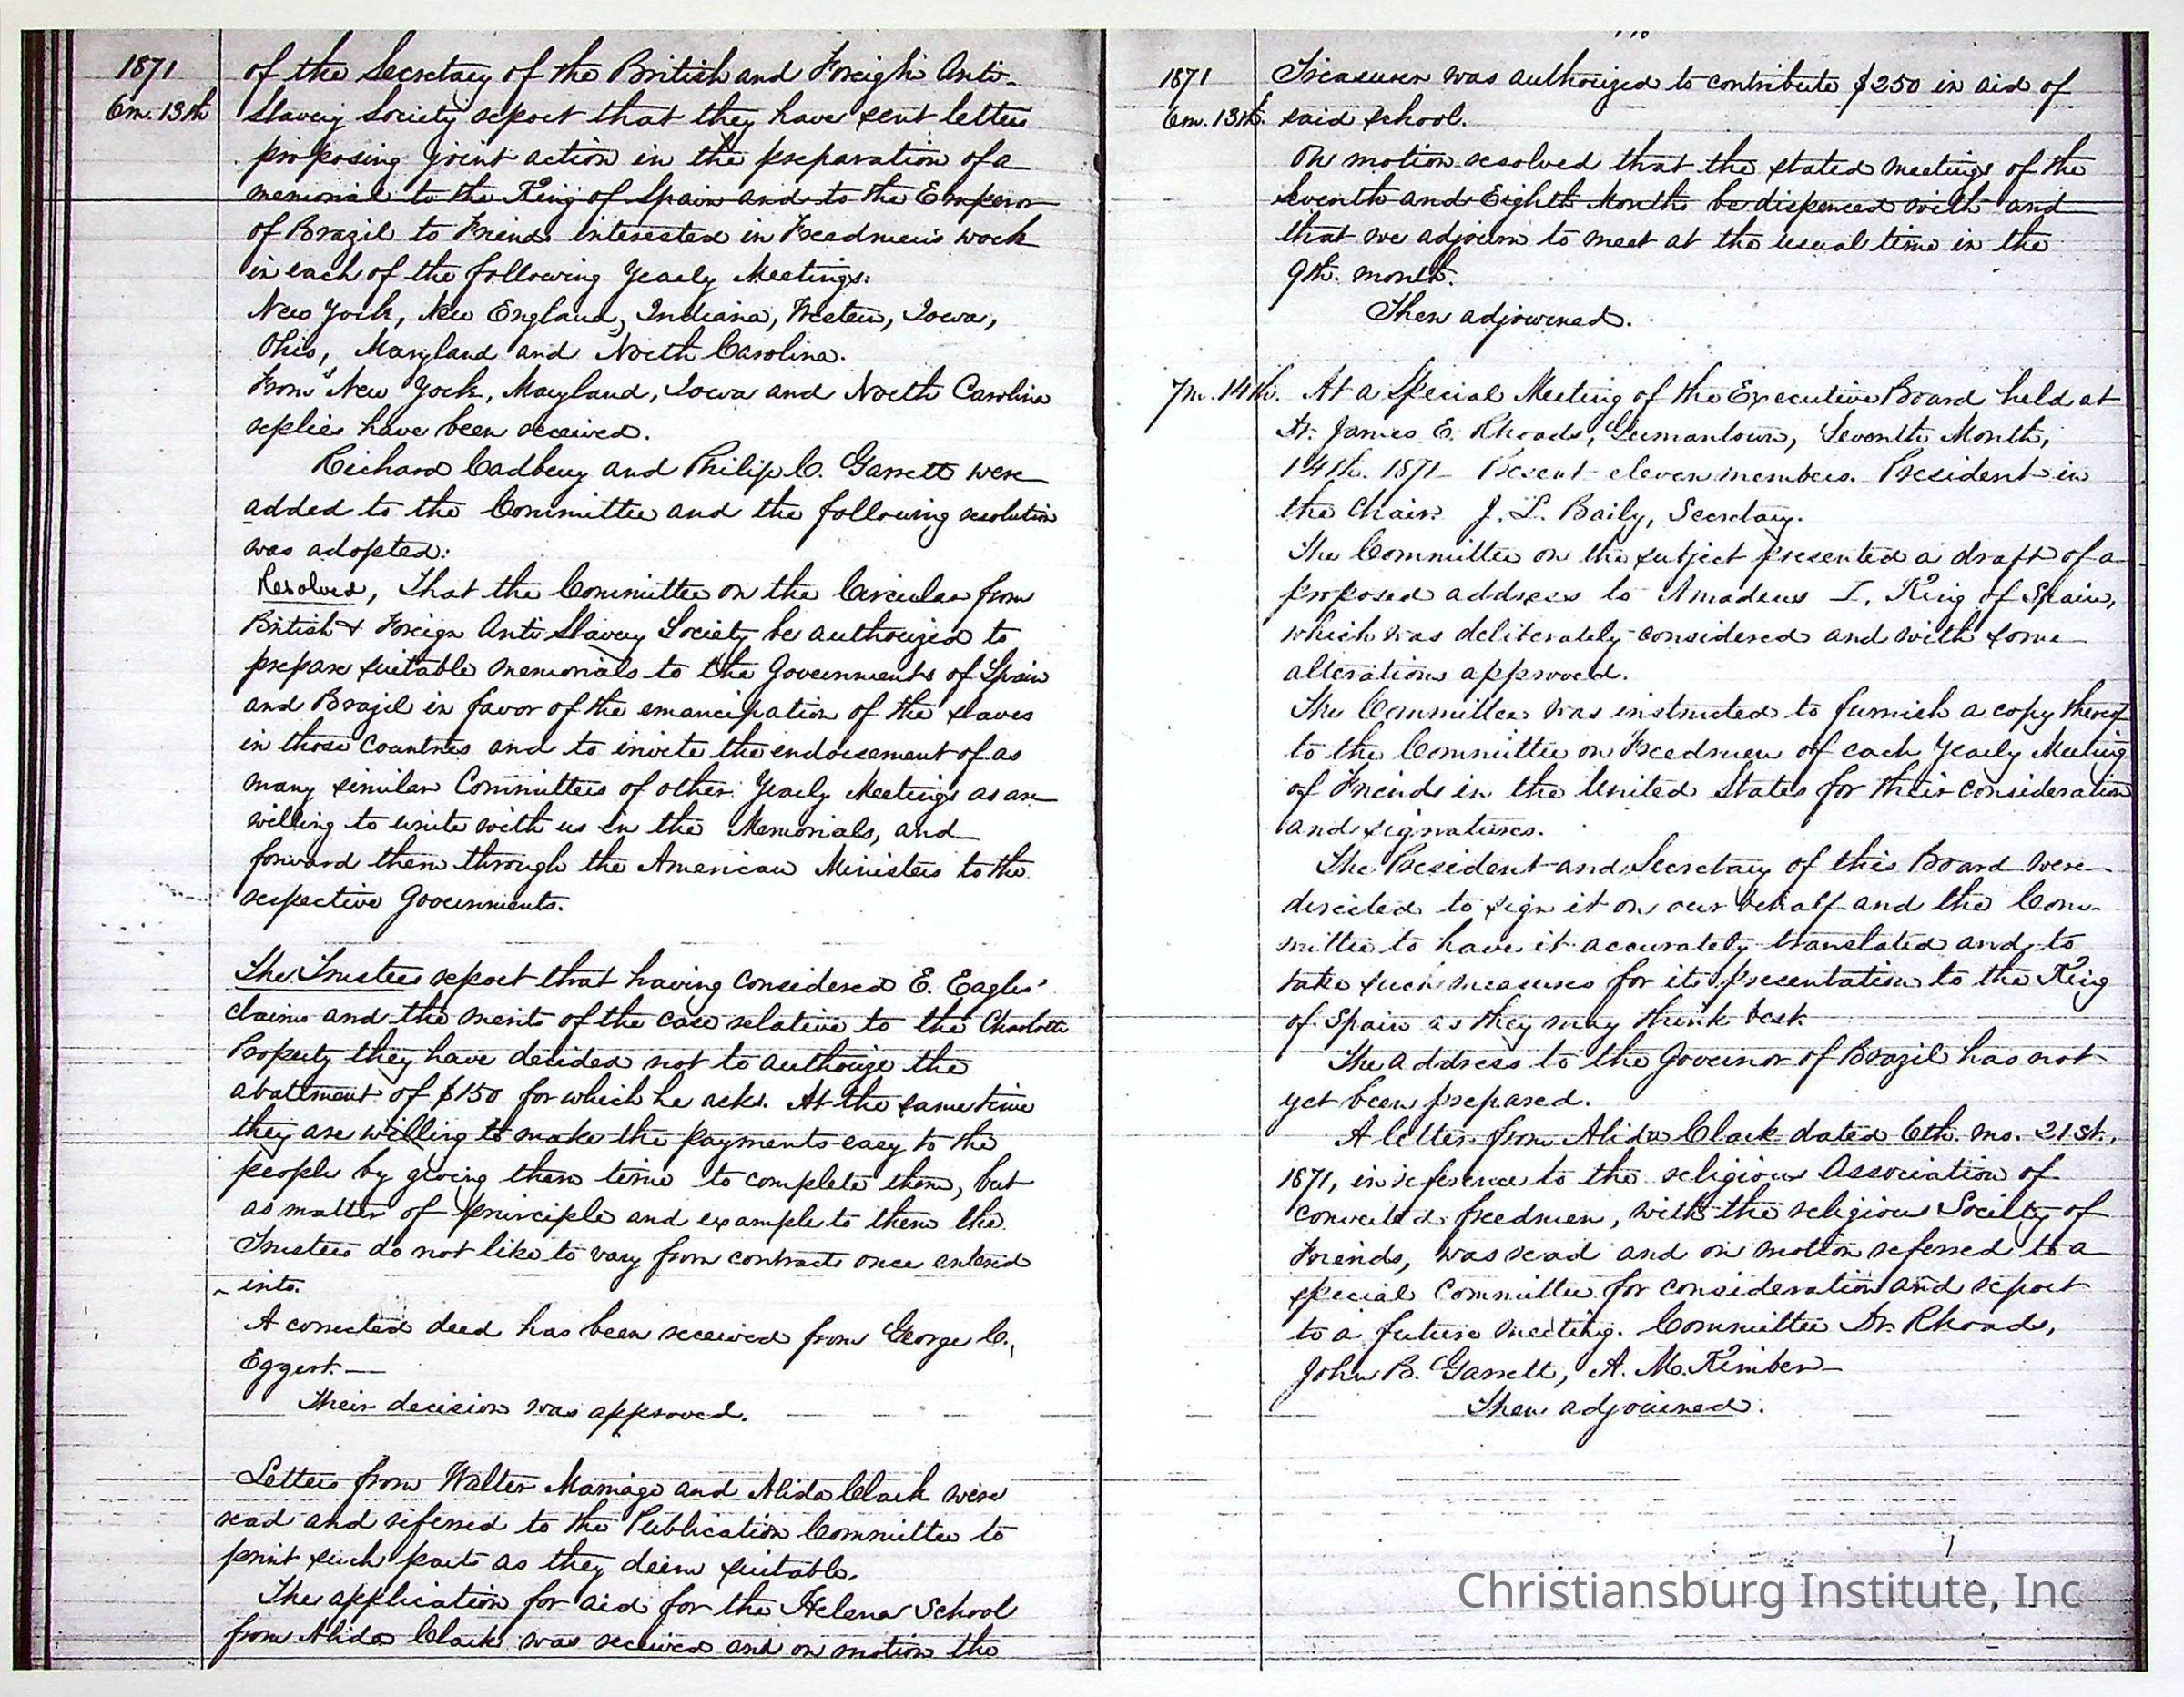 1871
6m. 13th
of the Secretary of the British and Foreign Anti-
Slavery Society report that they have sent letters
proposing joint action in the preparation of a
memorial to the King of Spain and to the Emperor
of Brazil to Friends interested in Freedmen's work
in each of the following Yearly Meetings:
New York, New England, Indiana, Western, Iowa,
Ohio, Maryland and North Carolina.
From New York, Maryland, Iowa and North Carolina
replies have been received.
Richard Cadbury and Philip C. Garrett were
added to the Committee and the following resolution
was adopted:
Resolved, That the Committee on the Circular from
British & Foreign Anti Slavery Society be authorized to
prepare suitable memorials to the Governments of Spain
and Brazil in favor of the emancipation of the slaves
in those Countries and to invite the endorsement of as
many similar Committees of other Yearly Meetings as are
willing to unite with us in the Memorials, and
forward them through the American Ministers to the
respective Governments.
The Trustees report that having considered E. Eagles'
claims and the merits of the case relative to the Charlotte
Property they have decided not to authorize the
abatement of $150 for which he asks. At the same time
they are willing to make the payments easy to the
people by giving them time to complete them, but
as matter of principle and example to them the
Trustees do not like to vary from contracts once entered
into.
A corrected deed has been received from George C.
Eggert.—
Their decision was approved.
Letters from Walter Marriage and Alida Clark were
read and referred to the Publication Committee to
print such parts as they deem suitable.
The application for aid for the Helena School
from Alida Clark was received and on motion the
1871
6m. 13th.
Treasurer was authorized to contribute $250 in aid of
said school.
On motion resolved that the stated meetings of the
Seventh and Eighth Months be dispensed with and
that we adjourn to meet at the usual time in the
9th. month.
Then adjourned.
7m. 14th. At a Special Meeting of the Executive Board held at
Dr. James E. Rhoads, Germantown, Seventh Month,
14th. 1871 Present eleven members. President in
the Chair. J. L. Baily, Secretary.
The Committee on the subject presented a draft of a
proposed address to Amadeus I, King of Spain,
which was deliberately considered and with some
alterations approved.
The Committee was instructed to furnish a copy thereof
to the Committee on Freedmen of each Yearly Meeting
of Friends in the United States for their consideration
and signatures.
The President and Secretary of this Board were
directed to sign it on our behalf and the Com-
mittee to have it accurately translated and to
take such measures for its presentation to the King
of Spain as they may think best.
The address to the Governor of Brazil has not
yet been prepared.
A letter from Alida Clark dated 6th. mo. 21st.,
1871, in reference to the religious Association of
converted freedmen, with the religious Society of
Friends, was read and on motion referred to a
special Committee for consideration and report
to a future meeting. Committee Dr. Rhoads,
John B. Garrett, A. M. Kimber—
Then adjourned.
Christiansburg Institute, Inc